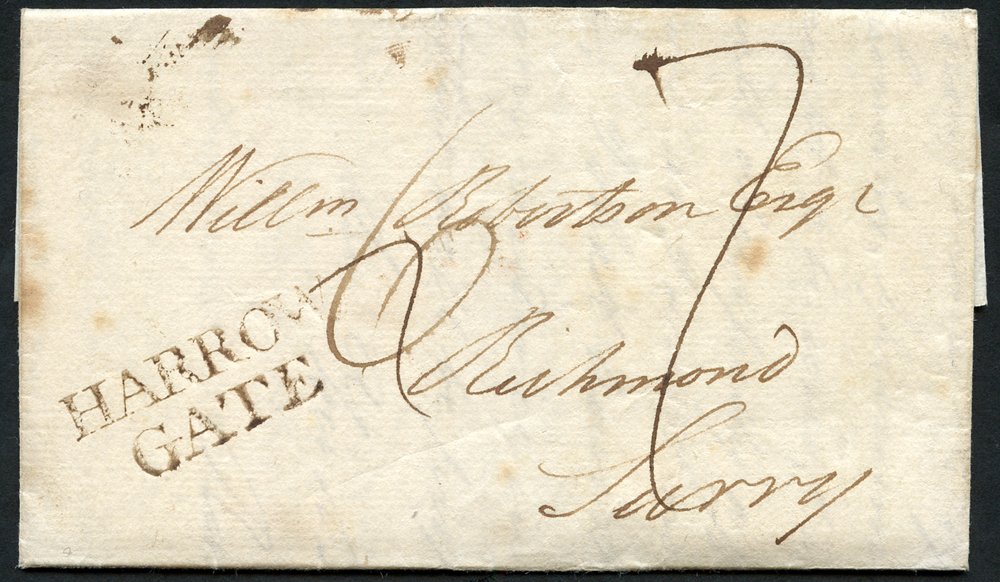 Willm Robertson Esqr
HARROW
GATE
Richmond
Surry
7